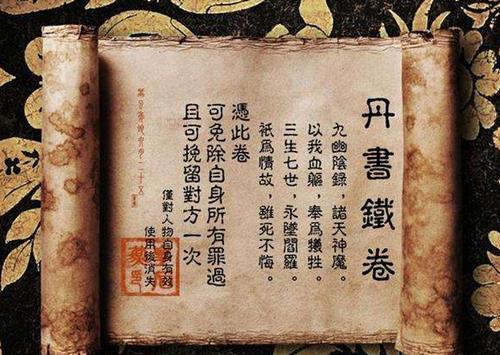 丹書鐵卷
九幽陰録，諸天神魔。
以我血軀，奉爲犧牲。
三生七世，永墜閻羅。
袛爲情故，雖死不悔。
憑此卷
可免除自身所有罪過
且可挽留對方一次
僅對人物自身有效
使用後消失